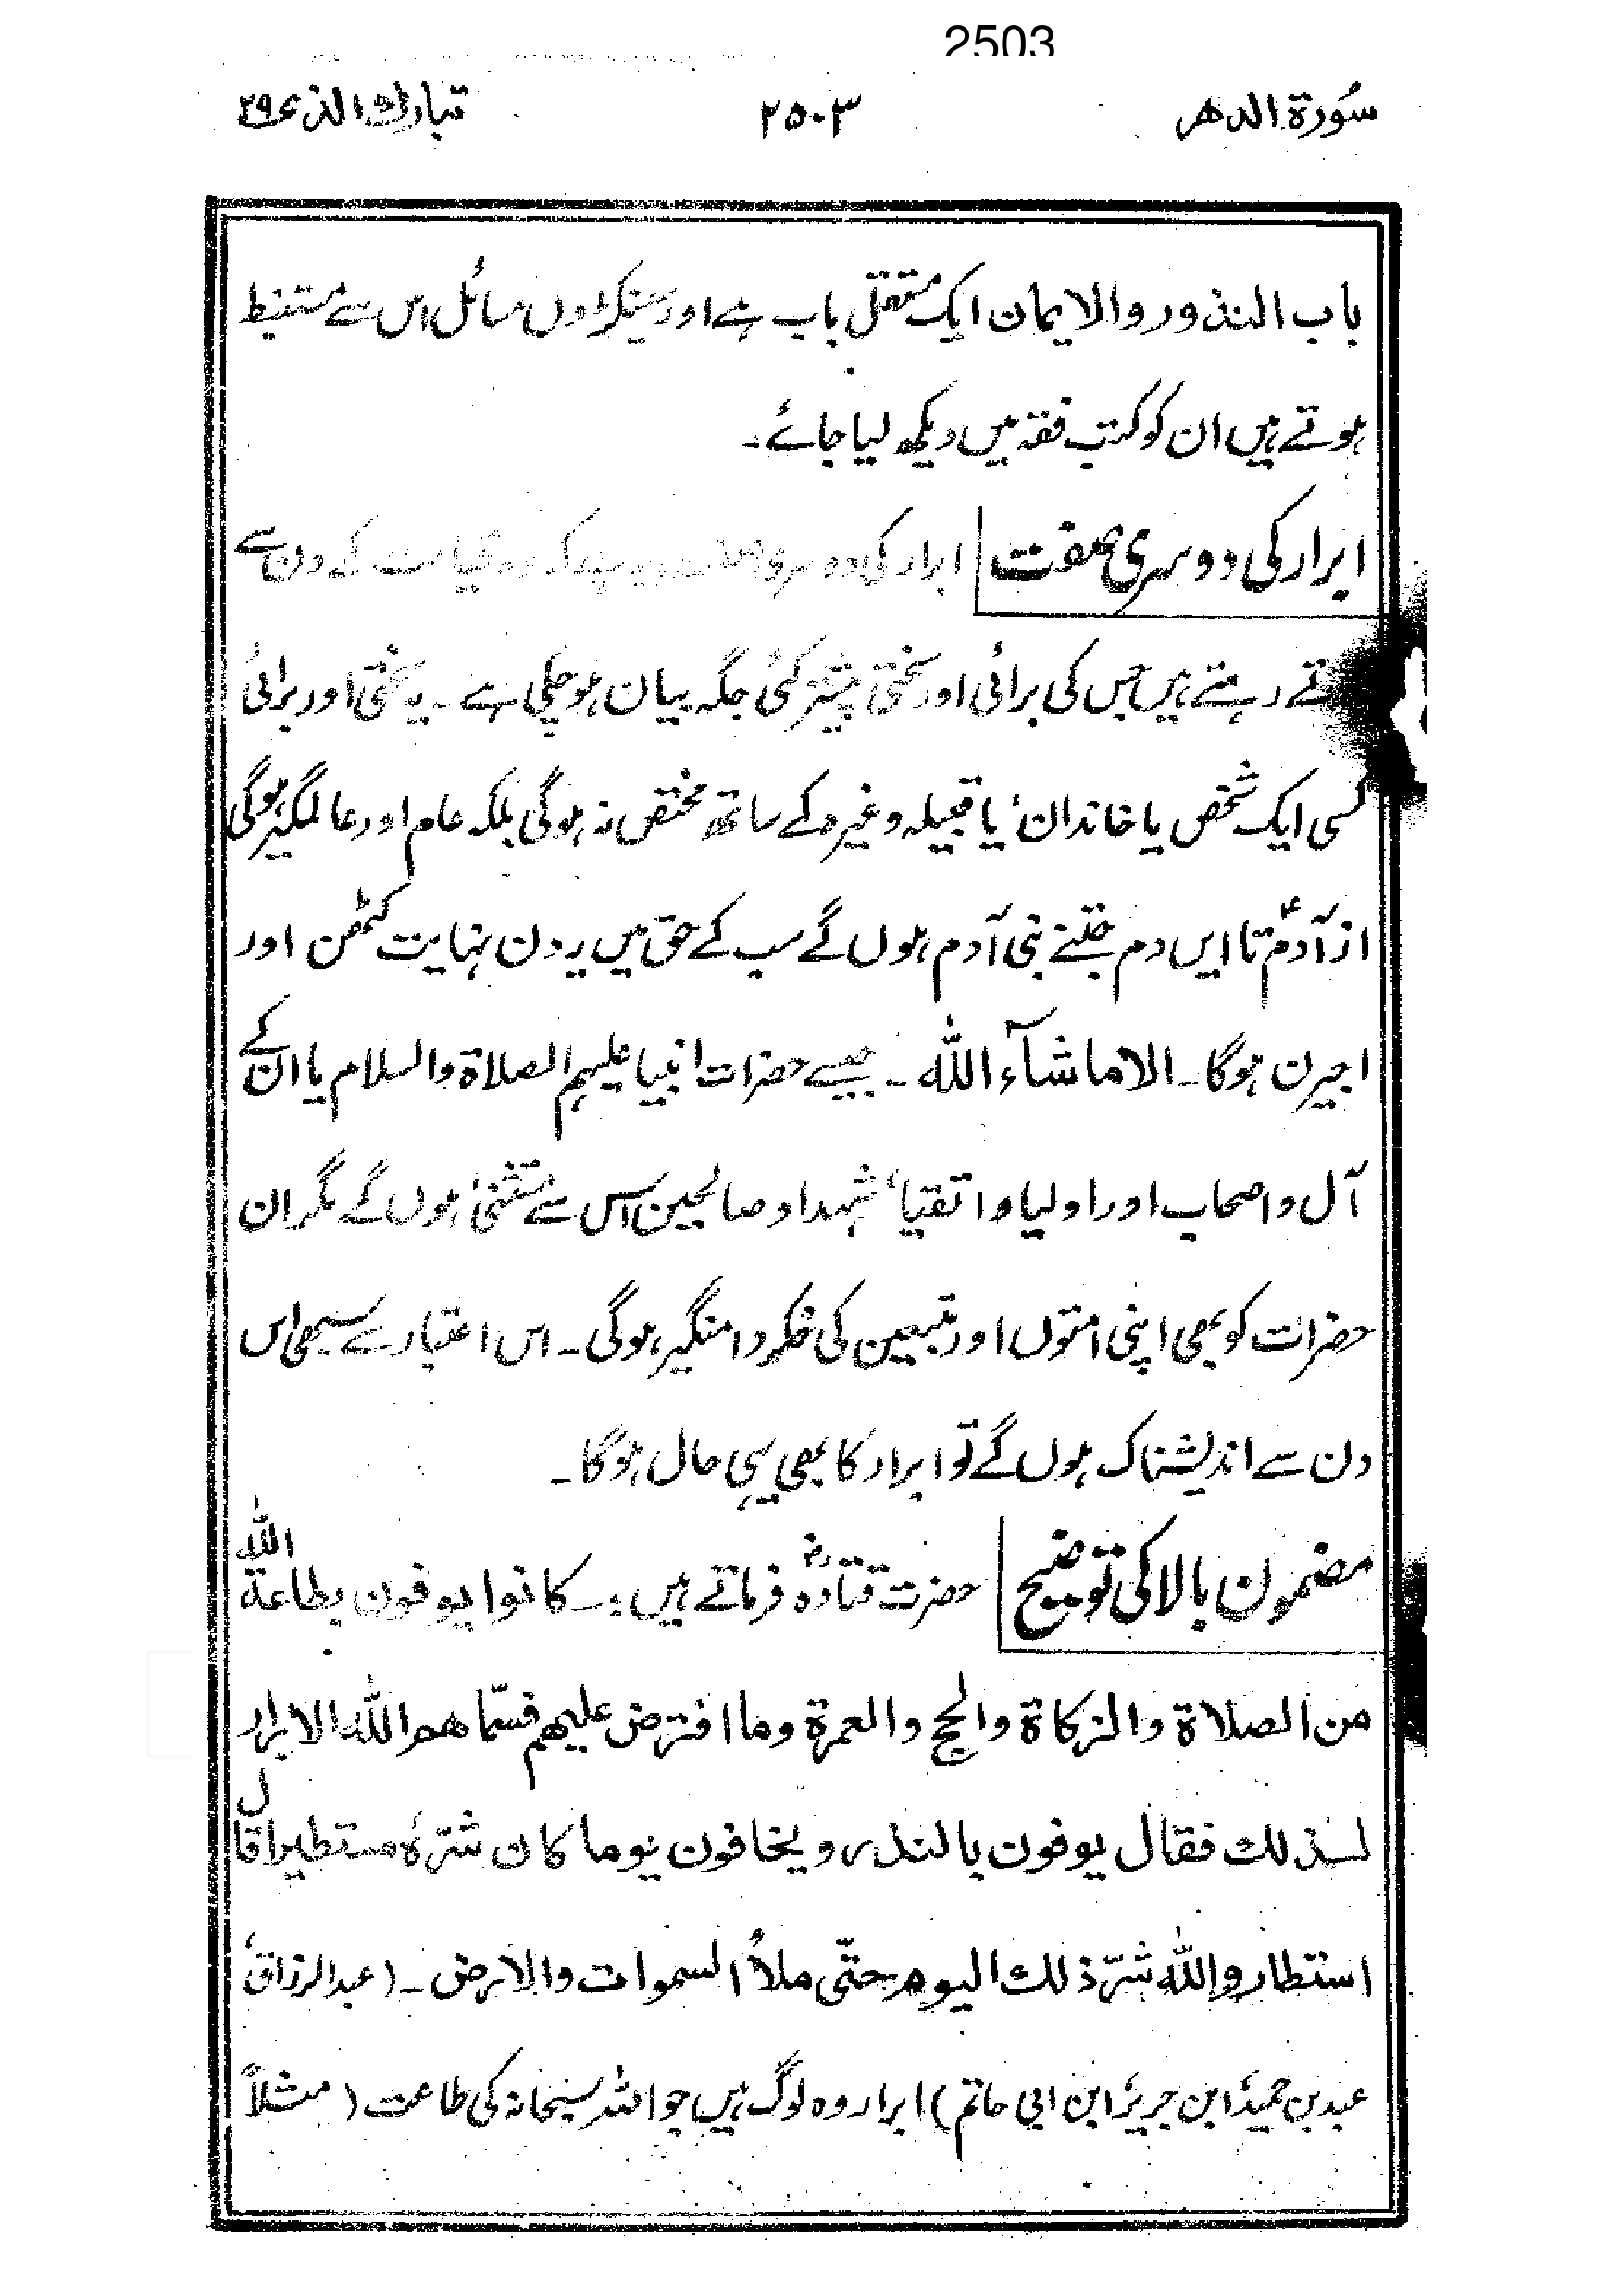 2503
سُورة الدهر ۲۵۰۳ تبارك الذی ۲۹
باب النذور والایمان ایک مستقل باب ہے اور سینکڑوں مسائل اس سے مستنبط
ہوتے ہیں ان کو کتب فقہ میں دیکھ لیا جائے۔
ابرار کی دوسری صفت ابرار کی دوسری صفت یہ ہے کہ وہ قیامت کے دن سے
رہتے ہیں جس کی برائی اور سختی پیشتر کئی جگہ بیان ہوچکی ہے۔ یہ سختی اور برائی
کسی ایک شخص یا خاندان، یا قبیلہ وغیرہ کے ساتھ مختص نہ ہوگی بلکہ عام اور عالمگیر ہوگی
از آدمؑ تا ایں دم جتنے بنی آدم ہوں گے سب کے حق میں یہ دن نہایت کٹھن اور
اجیرن ہوگا۔ الا ماشآء اللّٰہ۔ جیسے حضرات انبیا علیہم الصلاۃ والسلام یا ان کے
آل و اصحاب اور اولیا و اتقیا، شہدا و صالحین اس سے مستثنیٰ ہوں گے مگر ان
حضرات کو بھی اپنی امتوں اور متبعین کی فکر دامنگیر ہوگی۔ اس اعتبار سے سبھی اس
دن سے اندیشناک ہوں گے تو ابرار کا بھی یہی حال ہوگا۔
مضمون بالا کی توضیح حضرت قتادہؓ فرماتے ہیں:۔ کانوا یوفون بطاعة اللّٰه
من الصلاة والزكاة والحج والعمرة وما افترض علیهم فسمّاهم اللّٰه الابرار
لذلك فقال یوفون بالنذر ویخافون یوما كان شرّهٗ مستطیرا قال
استطار واللّٰه شرّ ذلك الیوم حتّی ملأ السموات والارض۔ (عبدالرزاق،
عبد بن حمید، ابن جریر، ابن ابی حاتم) ابرار وہ لوگ ہیں جو اللہ سبحانہ کی طاعت (مثلاً